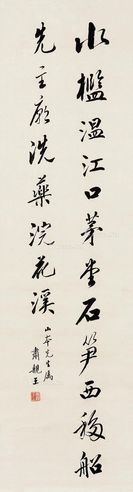 水槛温江口茅堂石笋西移船
先主廟洗藥浣花溪
山本先生属
肅親王